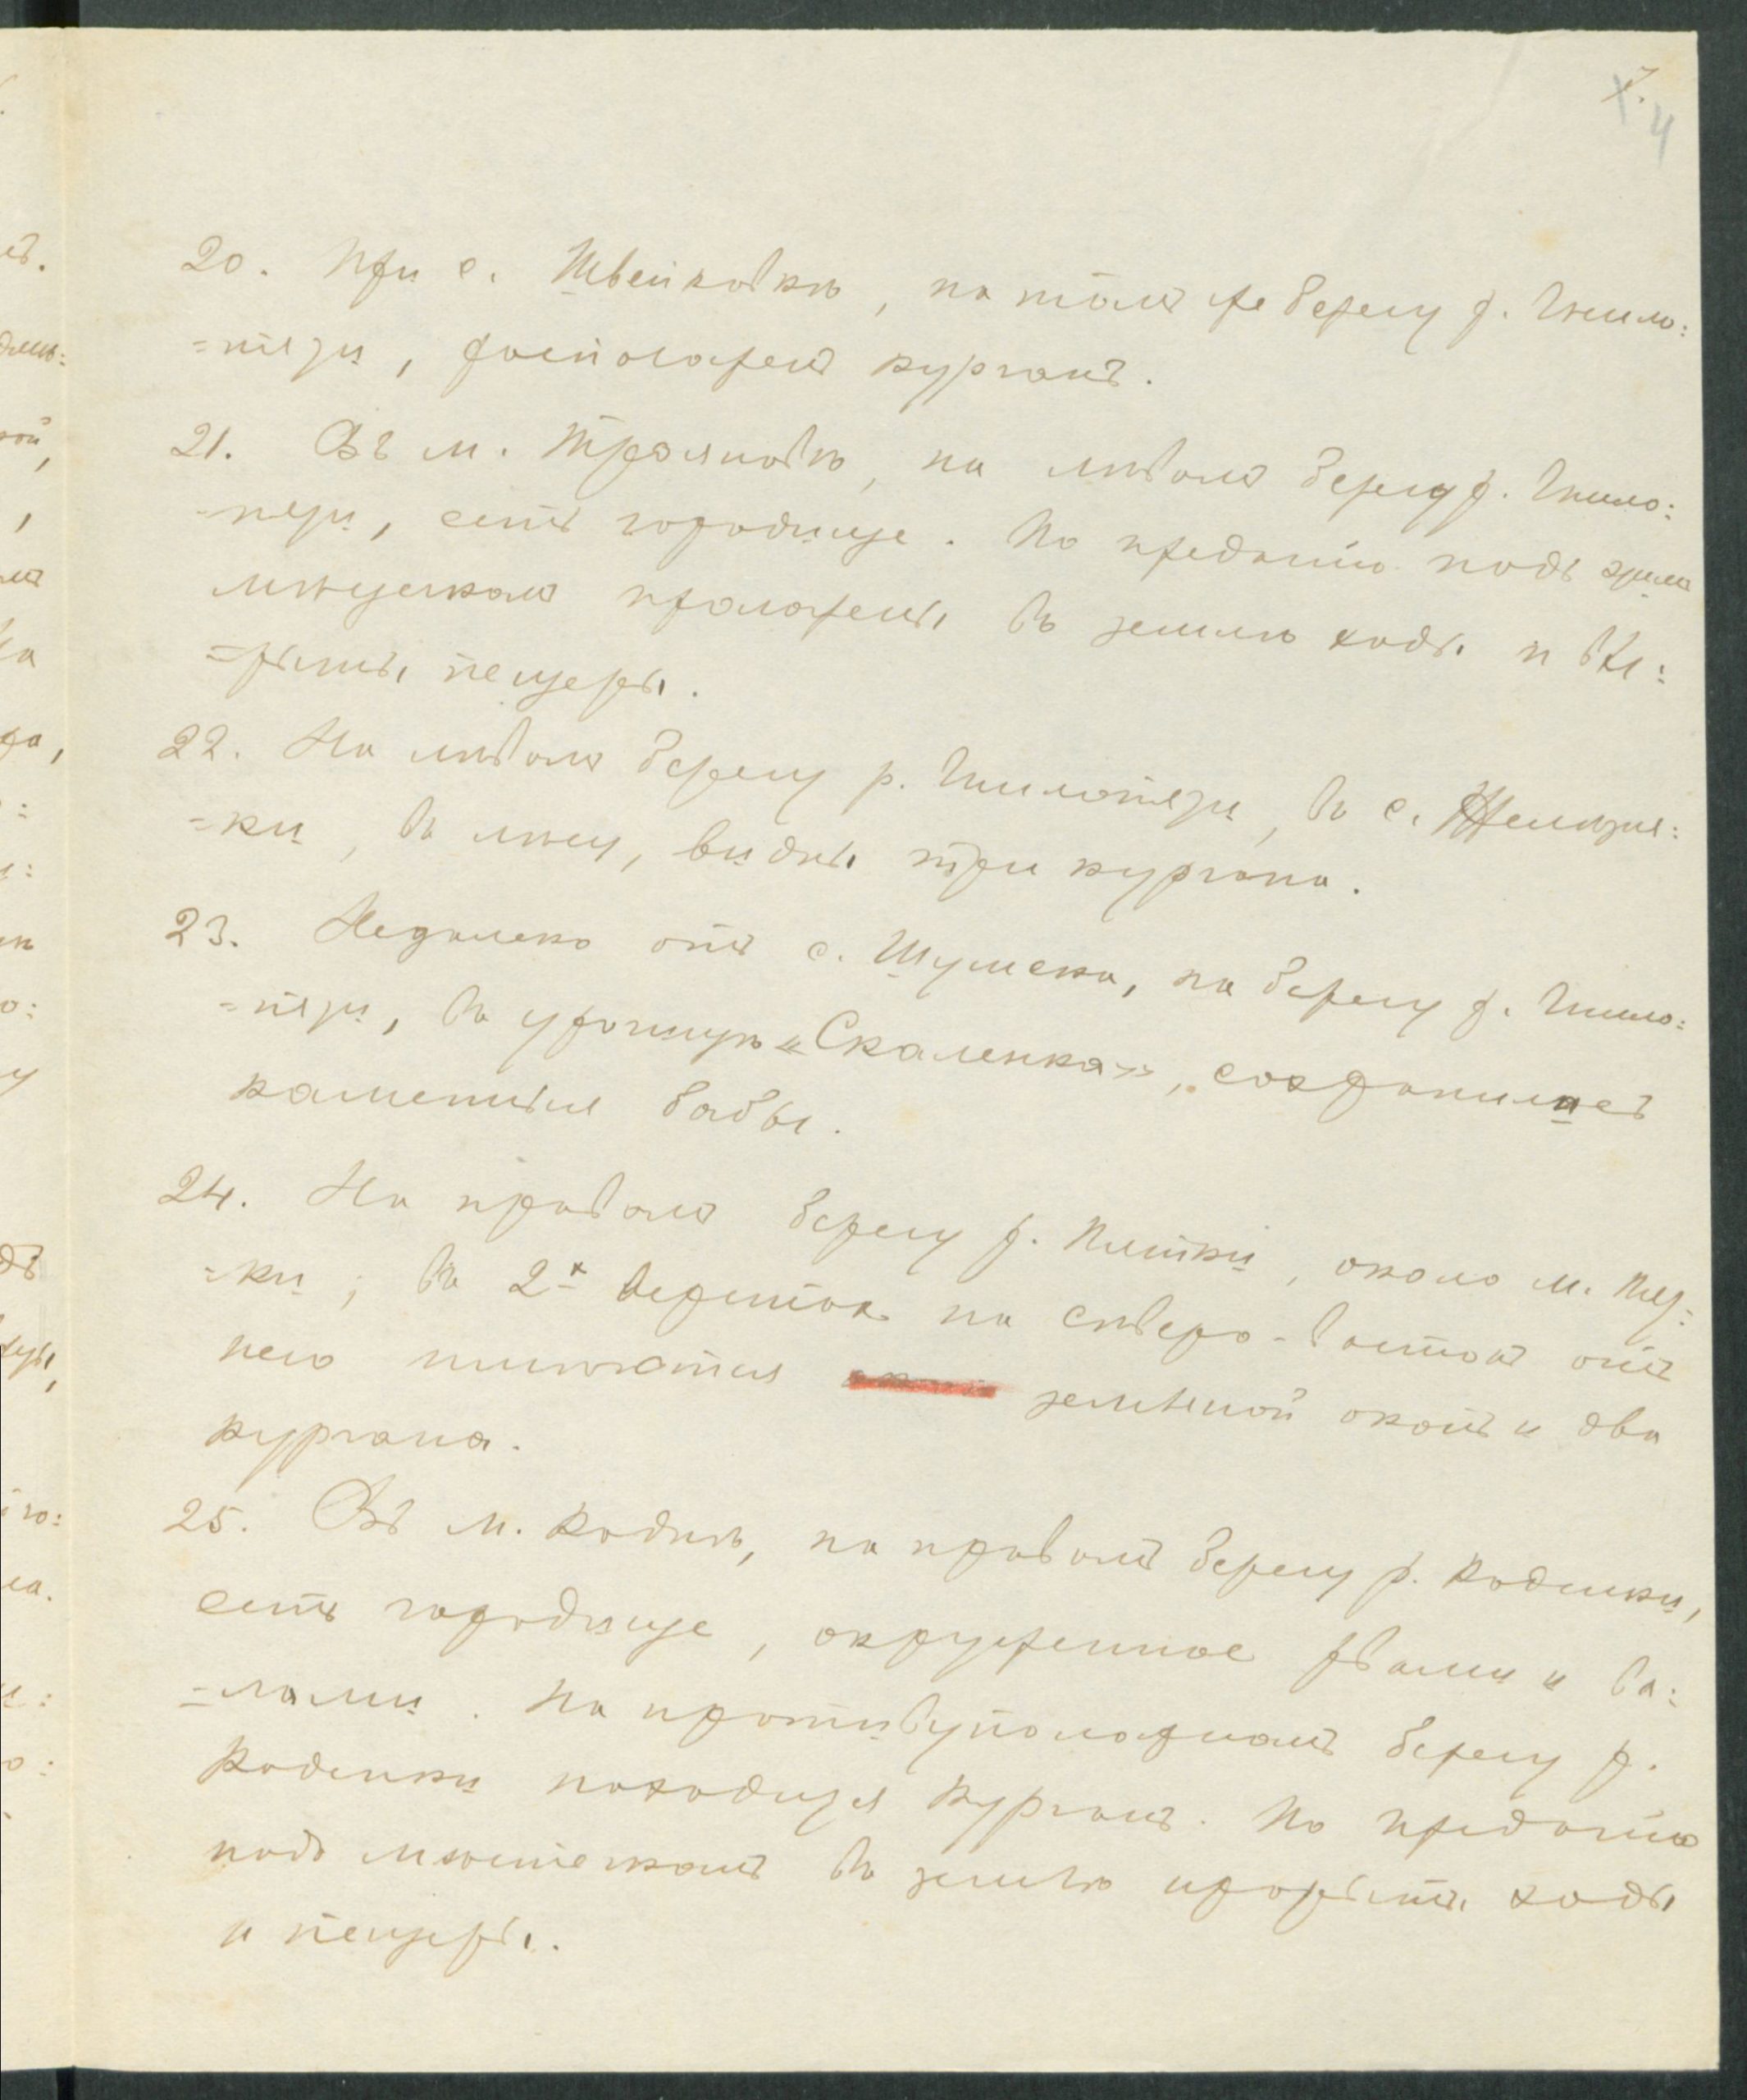 7.
4
20. При с. Швейковкѣ, на томъ же берегу р. Гнило:
=пяди, расположенъ курганъ.
21. Въ м. Трояновѣ, на лѣвомъ берегу р. Гнило:
-пяди, есть городище. По преданію подъ этимъ
мѣстечкомъ проложены въ землѣ ходы и вы:
=рыты пещеры.
22. На лѣвомъ берегу р. Гнилопяди, въ с.
=ки, въ лѣсу, видны три кургана.
23. Недалеко отъ с. Шумска, на берегу р. Гнило:
=пяди, въ урочищѣ «Скаленка», сохранились
каменныя бабы.
24. На правомъ берегу р. Пятки, около м. Пят:
=ки, въ 2х верстахъ на сѣверо-востокъ отъ
него имѣются земляной окопъ и два
кургана.
25. Въ м. Коднѣ, на правомъ берегу р. Коденки,
есть городище, окруженное рвами и ва:
=лами. На противуположномъ берегу р.
Коденки находится курганъ. По преданію
подъ мѣстечкомъ въ землѣ прорыты ходы
и пещеры.